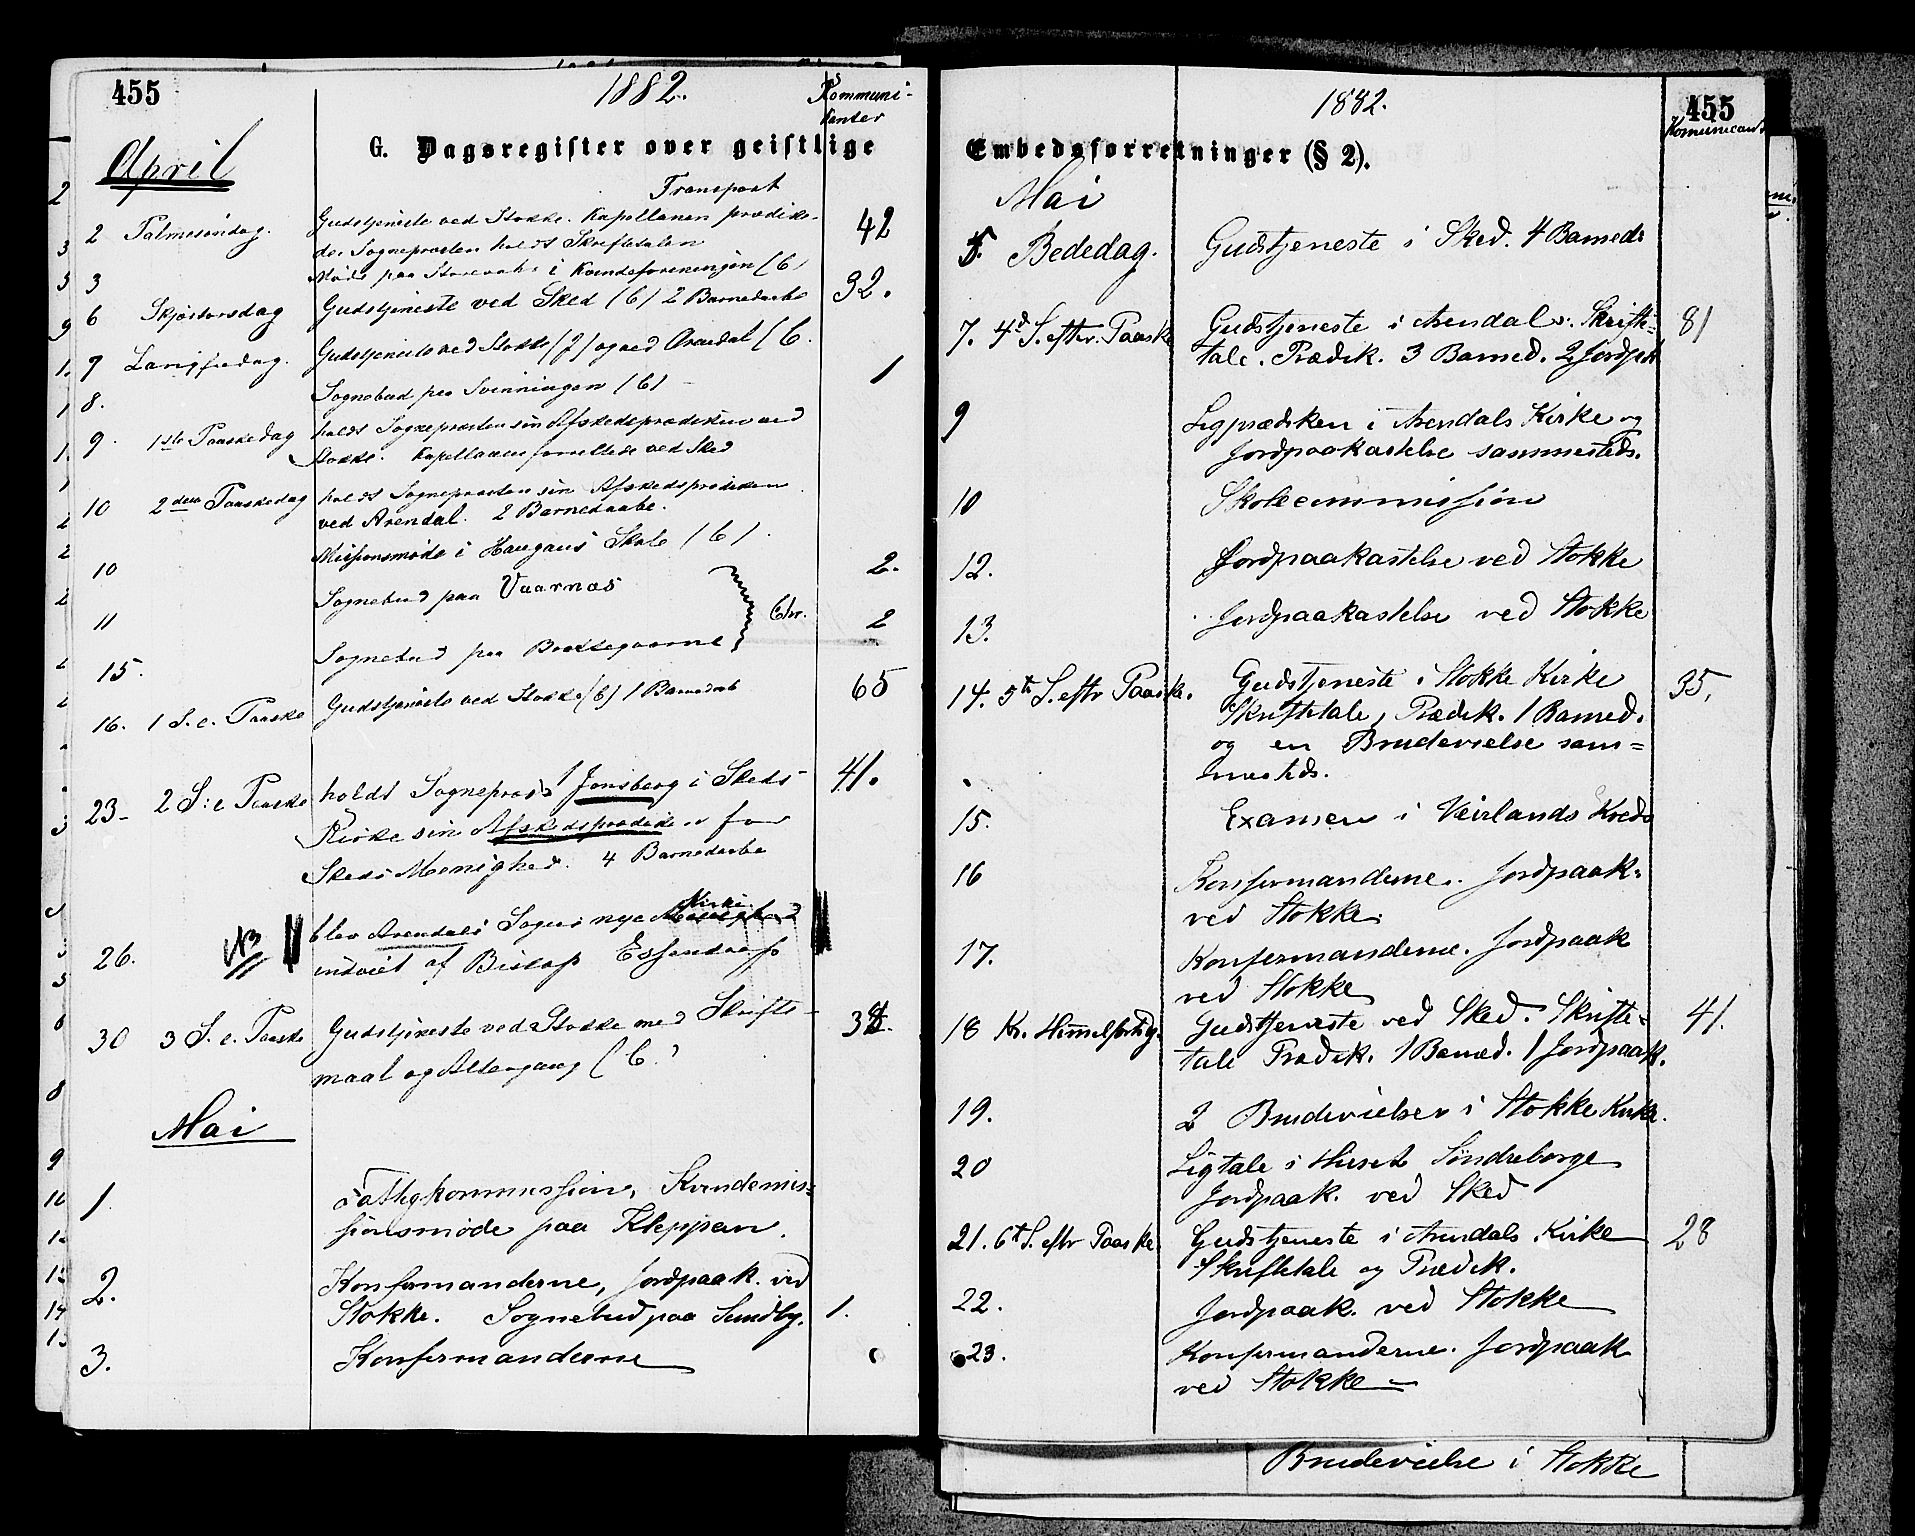 455
1882.
Kommuni-
kanter
G. Dagsregister over geistlige
April
Transport
2 Palmesöndag. Gudstjeneste ved Stokke. Kapellanen prædike- 42
de. Sogneprästen holdt Skriftetalen
3 Möde paa Storevahr i Kvindeforeningen (C)
6 Skjærtorsdag Gudstjeneste ved Sked (C) 2 Barnedaabe 32.
7 Langfredag. Gudstjeneste ved Stokke (J) og ved Arendal (C.
8. Sognebud paa Svinningen (C) — 1
9. 1ste Paaskedag holdt Sogneprästen sin Afskedsprædiken ved
Stokke. Kapellanen forrettede ved Sked
10 2den Paaskedag holdt Sogneprästen sin Afskedsprædiken
ved Arendal. 2 Barnedaabe.
10 Missionsmöde i Haugans Skole (C).
11 Sognebud paa Vaarnæs 2.
Chr.
15. Sognebud paa 2
16. 1 S. e. Paaske Gudstjeneste ved Stokke (C) 1 Barnedaab 65
23- 2 S: e Paaske holdt Sogneprost Jonsberg i Skeds 41.
Kirke sin Afskedsprædiken for
Skeds Menighed. 4 Barnedaabe
Kirke
26. NB blev Arendals Sogns nye
indviet af Biskop Essendrop
30 3 S. e. Paaske Gudstjeneste ved Stokke med Skrifte-
maal og Altergang (C.)
Mai
1. Fattigkommission, Kvindemis-
sionsmöde paa Kleppan.
2. Konfirmanderne, Jordpaak. ved
Stokke. Sognebud paa Sundby. 1.
3. Konfirmanderne
1882.
455
Komunicant
Embedsforretninger (§ 2).
Mai
5. Bededag. Gudstjeneste i Sked. 4 Barned:
7. 4d S. efter Paaske Gudstjeneste i Arendal. Skrifte- 81
tale. Prædik. 3 Barned. 2 Jordpk
9 Ligprædiken i Arendals Kirke og
Jordpaakastelse sammesteds.
10 Skolecommission
12. Jordpaakastelse ved Stokke
13. Jordpaakastelse ved Stokke
14. 5te S. eftr Paaske. Gudstjeneste i Stokke Kirke 35,
Skriftetale, Prædik. 1 Barned.
og en Brudevielse sam=
mesteds.
15. Examen i Veirlands Kreds
16 Konfirmanderne. Jordpaak.
ved Stokke.
17. Konfirmanderne. Jordpaak
ved Stokke
18 Kr. Himmelfartsdg. Gudstjeneste ved Sked. Skrifte- 41.
tale Prædik. 1 Barned. 1 Jordpaak.
19. 2 Brudevielser i Stokke Kirke.
20 Ligtale i Huset Söndreborge
Jordpaak. ved Sked
21. 6t S. eftr Paaske Gudstjeneste i Arendals Kirke 28
Skriftetale og Prædik.
22. Jordpaak. ved Stokke
23. Konfirmanderne. Jordpaak
ved Stokke —
Brudevielse i Stokke